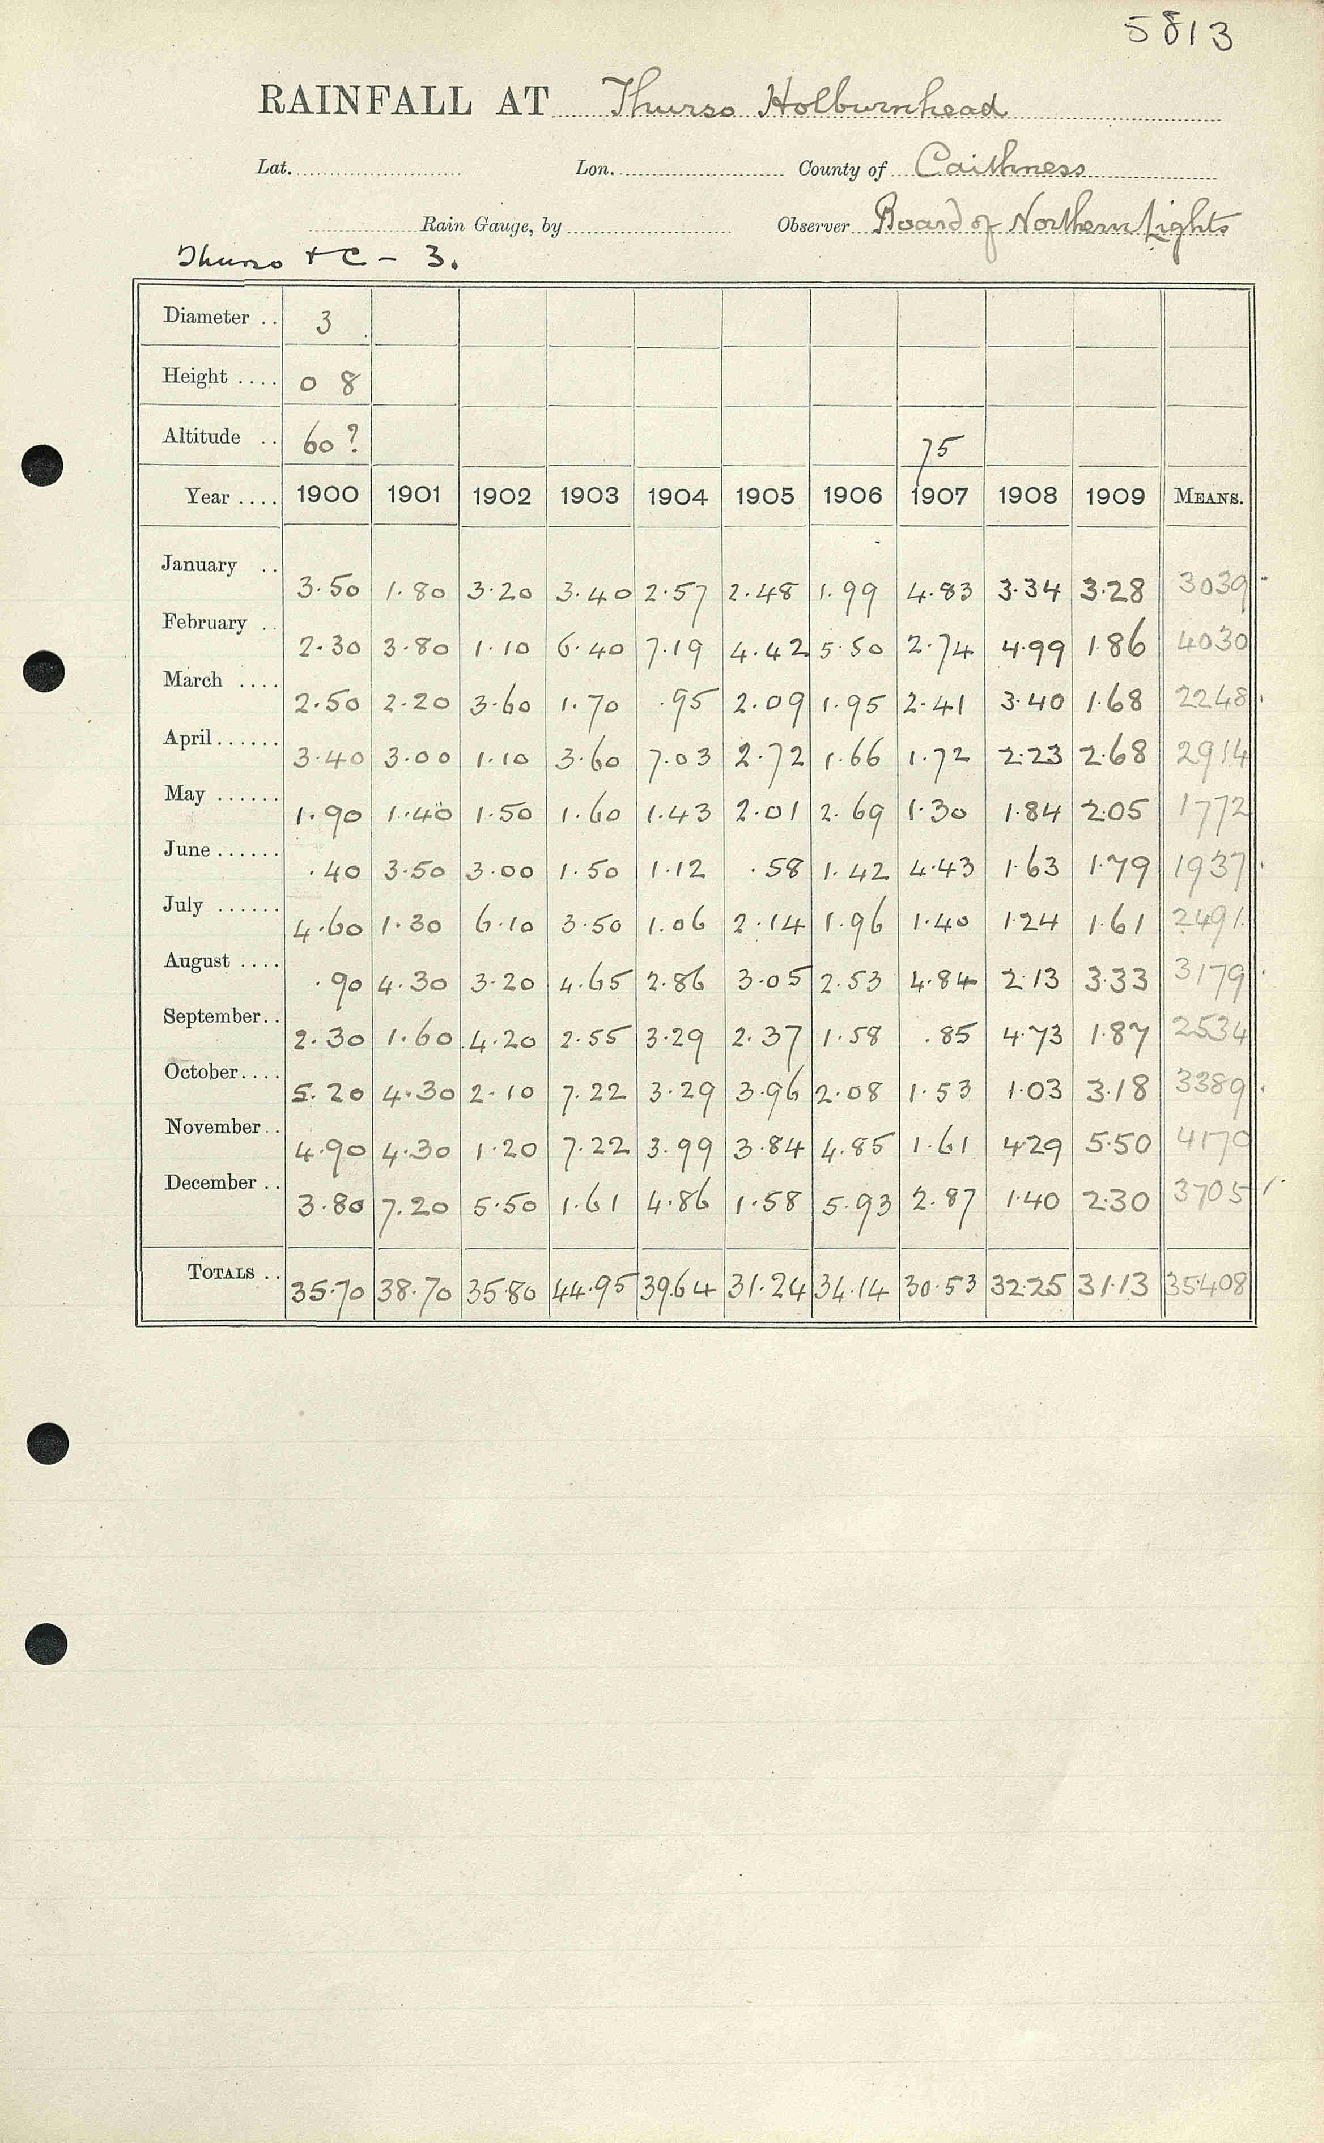 5813
RAINFALL AT Thurso Holburnhead
Lat. Lon. County of Caithness
Rain Gauge, by Observer Board of Northern Lights
Thurso + C - 3.
Diameter .. 3
Height .... 0 8
Altitude .. 60? 75
Year .... 1900 1901 1902 1903 1904 1905 1906 1907 1908 1909 MEANS.
January .. 3.50 1.80 3.20 3.40 2.57 2.48 1.99 4.83 3.34 3.28 3039
February .. 2.30 3.80 1.10 6.40 7.19 4.42 5.50 2.74 4.99 1.86 4030
March .... 2.50 2.20 3.60 1.70 .95 2.09 1.95 2.41 3.40 1.68 2248
April...... 3.40 3.00 1.10 3.60 7.03 2.72 1.66 1.72 2.23 2.68 2914
May ...... 1.90 1.40 1.50 1.60 1.43 2.01 2.69 1.30 1.84 2.05 1772
June ...... .40 3.50 3.00 1.50 1.12 .58 1.42 4.43 1.63 1.79 1937
July ...... 4.60 1.30 6.10 3.50 1.06 2.14 1.96 1.40 1.24 1.61 2491
August .... .90 4.30 3.20 4.65 2.86 3.05 2.53 4.84 2.13 3.33 3179
September.. 2.30 1.60 4.20 2.55 3.29 2.37 1.58 .85 4.73 1.87 2534
October.... 5.20 4.30 2.10 7.22 3.29 3.96 2.08 1.53 1.03 3.18 3389
November.. 4.90 4.30 1.20 7.22 3.99 3.84 4.85 1.61 4.29 5.50 4170
December .. 3.80 7.20 5.50 1.61 4.86 1.58 5.93 2.87 1.40 2.30 3705
TOTALS .. 35.70 38.70 35.80 44.95 39.64 31.24 34.14 30.53 32.25 31.13 35408